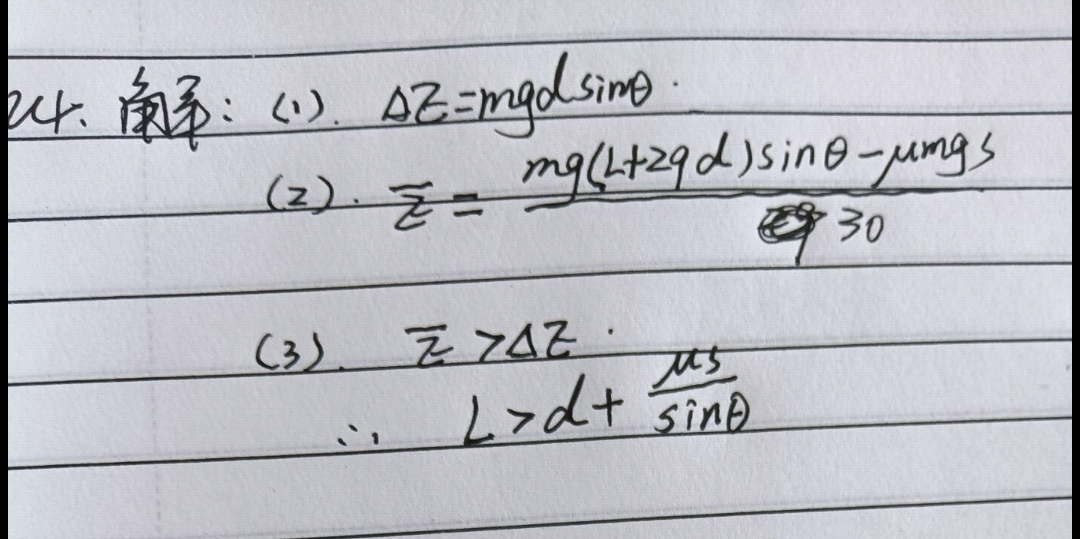 24. 解: (1). ΔE=mgdsinθ.
(2). Ē = mg(L+29d)sinθ-μmgs / 30
(3). Ē >ΔE.
∴ L>d+ μs/sinθ